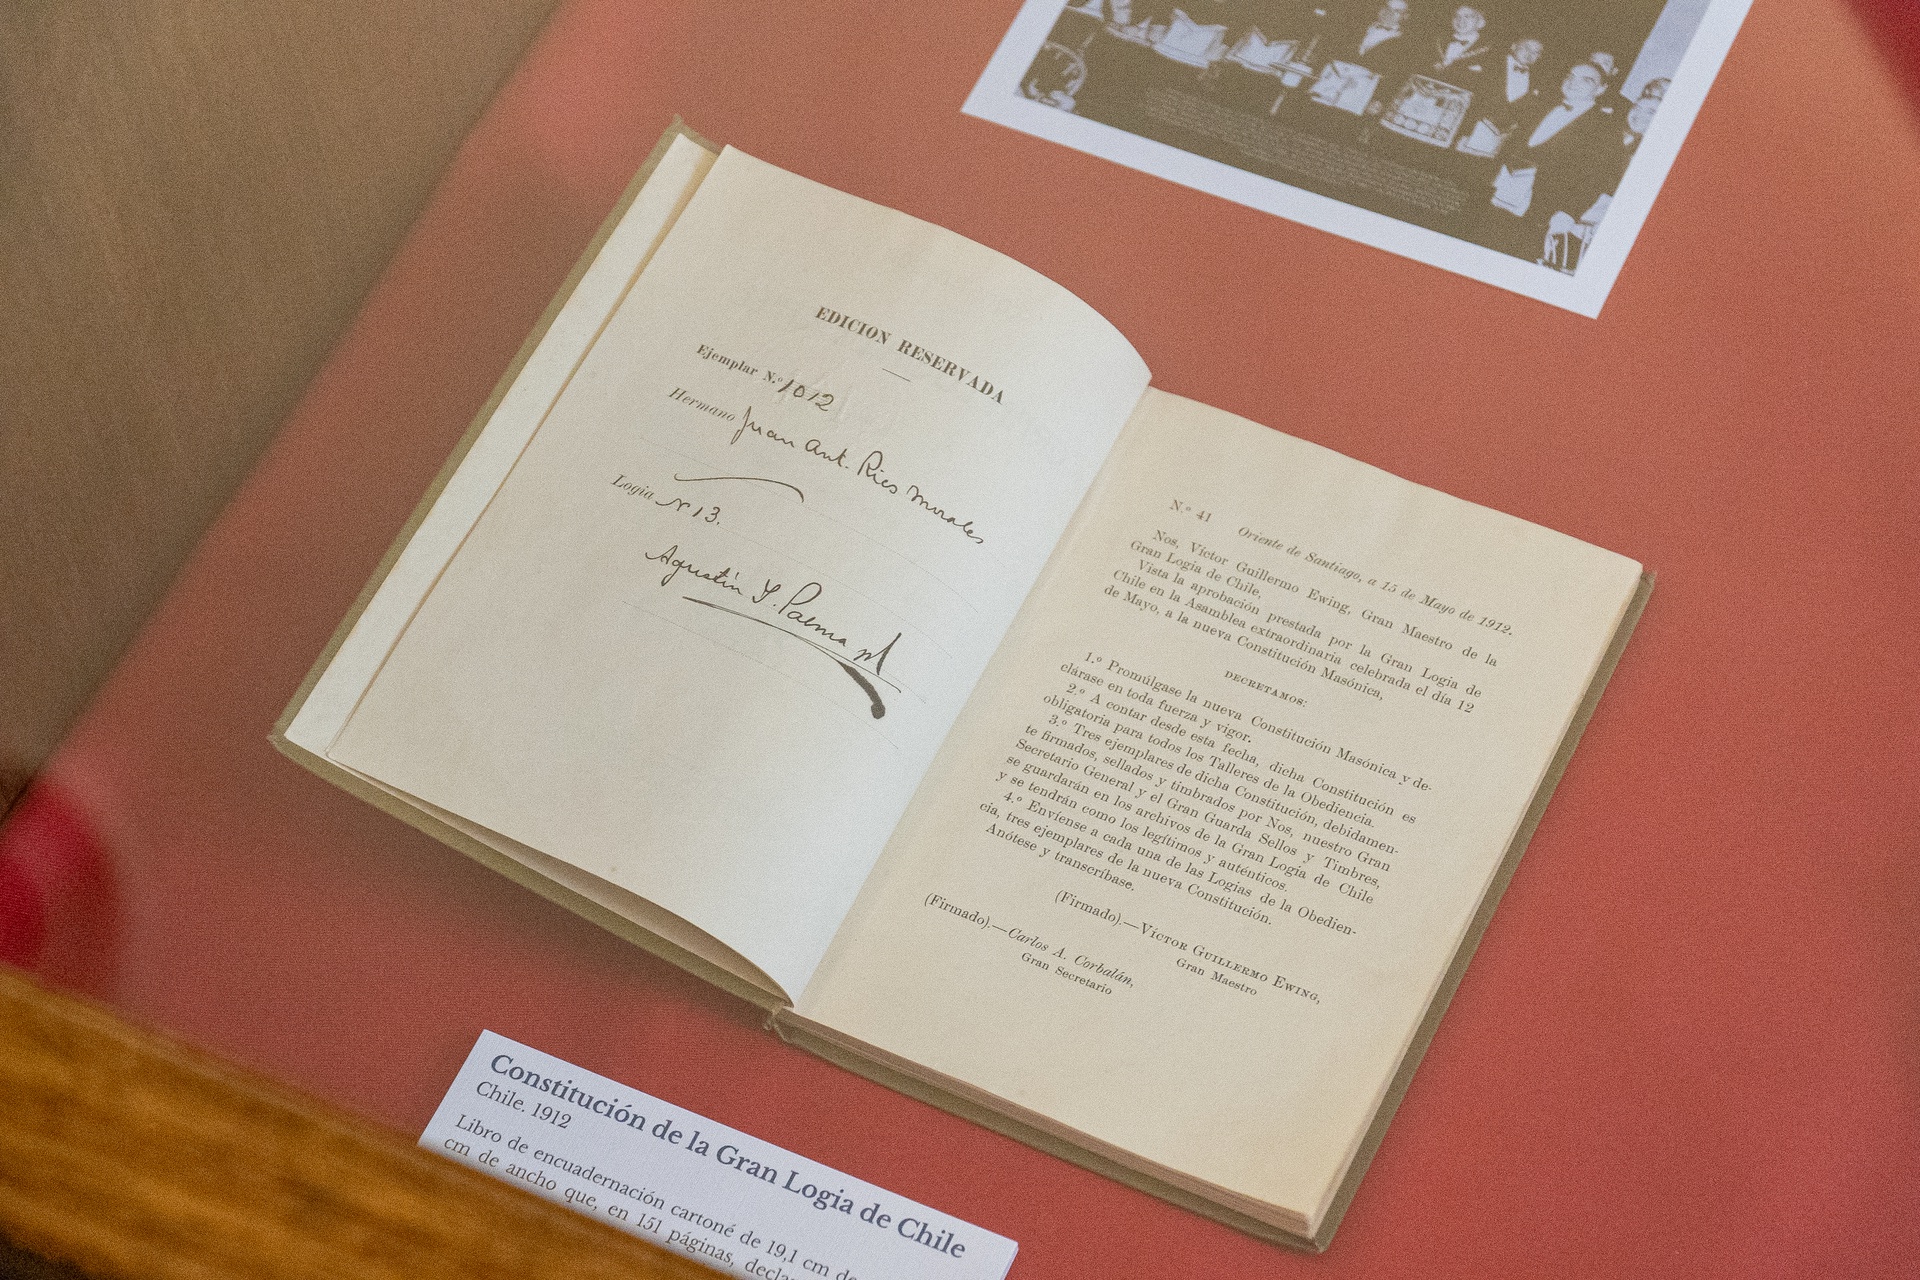 EDICION RESERVADA
Ejemplar N.º 1012
Hermano Juan Ant. Ríos Morales
Logia N 13.
Agustín Y. Palma
N.º 41 Oriente de Santiago, a 15 de Mayo de 1912.
Nos, Víctor Guillermo Ewing, Gran Maestro de la
Gran Logia de Chile,
Vista la aprobación prestada por la Gran Logia de
Chile en la Asamblea extraordinaria celebrada el día 12
de Mayo, a la nueva Constitución Masónica,
DECRETAMOS:
1.º Promúlgase la nueva Constitución Masónica y de-
clárase en toda fuerza y vigor.
2.º A contar desde esta fecha, dicha Constitución es
obligatoria para todos los Talleres de la Obediencia.
3.º Tres ejemplares de dicha Constitución, debidamen-
te firmados, sellados y timbrados por Nos, nuestro Gran
Secretario General y el Gran Guarda Sellos y Timbres,
se guardarán en los archivos de la Gran Logia de Chile
y se tendrán como los legítimos y auténticos.
4.º Envíense a cada una de las Logias de la Obedien-
cia, tres ejemplares de la nueva Constitución.
Anótese y transcríbase.
(Firmado).—VÍCTOR GUILLERMO EWING,
Gran Maestro
(Firmado).—Carlos A. Corbalán,
Gran Secretario
Constitución de la Gran Logia de Chile
Chile. 1912
Libro de encuadernación cartoné de 19,1 cm de
cm de ancho que, en 151 páginas,